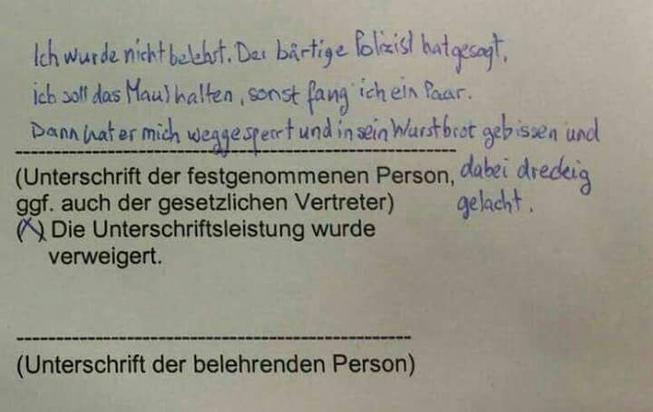 Ich wurde nicht belehrt. Der bärtige Polizist hat gesagt,
ich soll das Maul halten, sonst fang ich ein Paar.
Dann hat er mich weggesperrt und in sein Wurstbrot gebissen und
dabei dreckig
gelacht.
(Unterschrift der festgenommenen Person,
ggf. auch der gesetzlichen Vertreter)
(X) Die Unterschriftsleistung wurde
verweigert.
(Unterschrift der belehrenden Person)